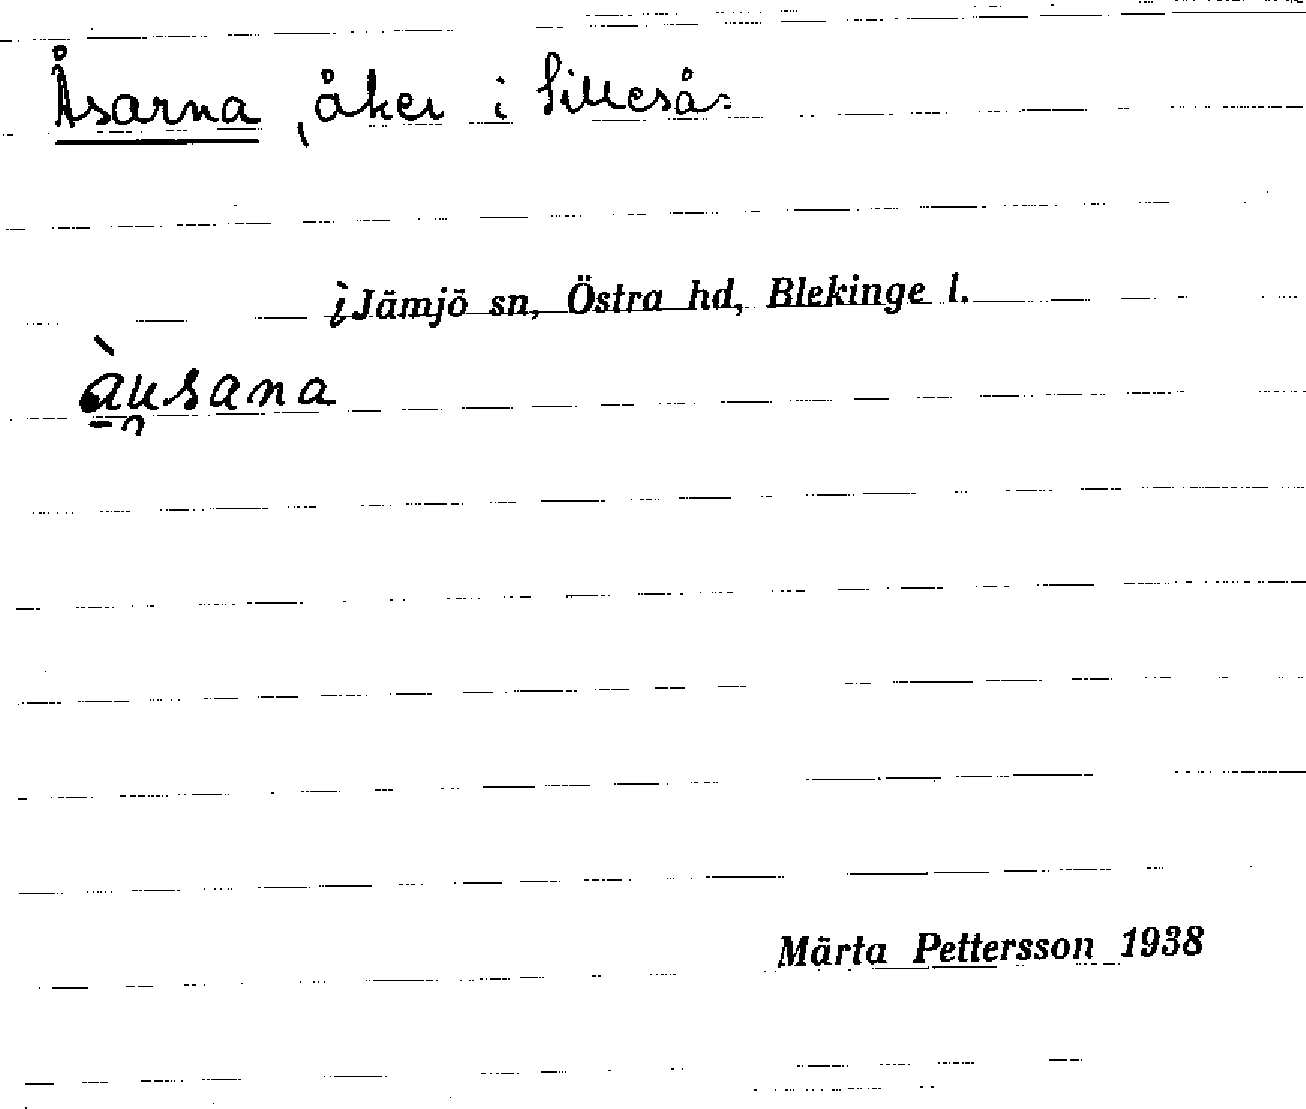 Åsarna, åker i Silleså:
i Jämjö sn, Östra hd, Blekinge l.
àu̯sana
Märta Pettersson 1938